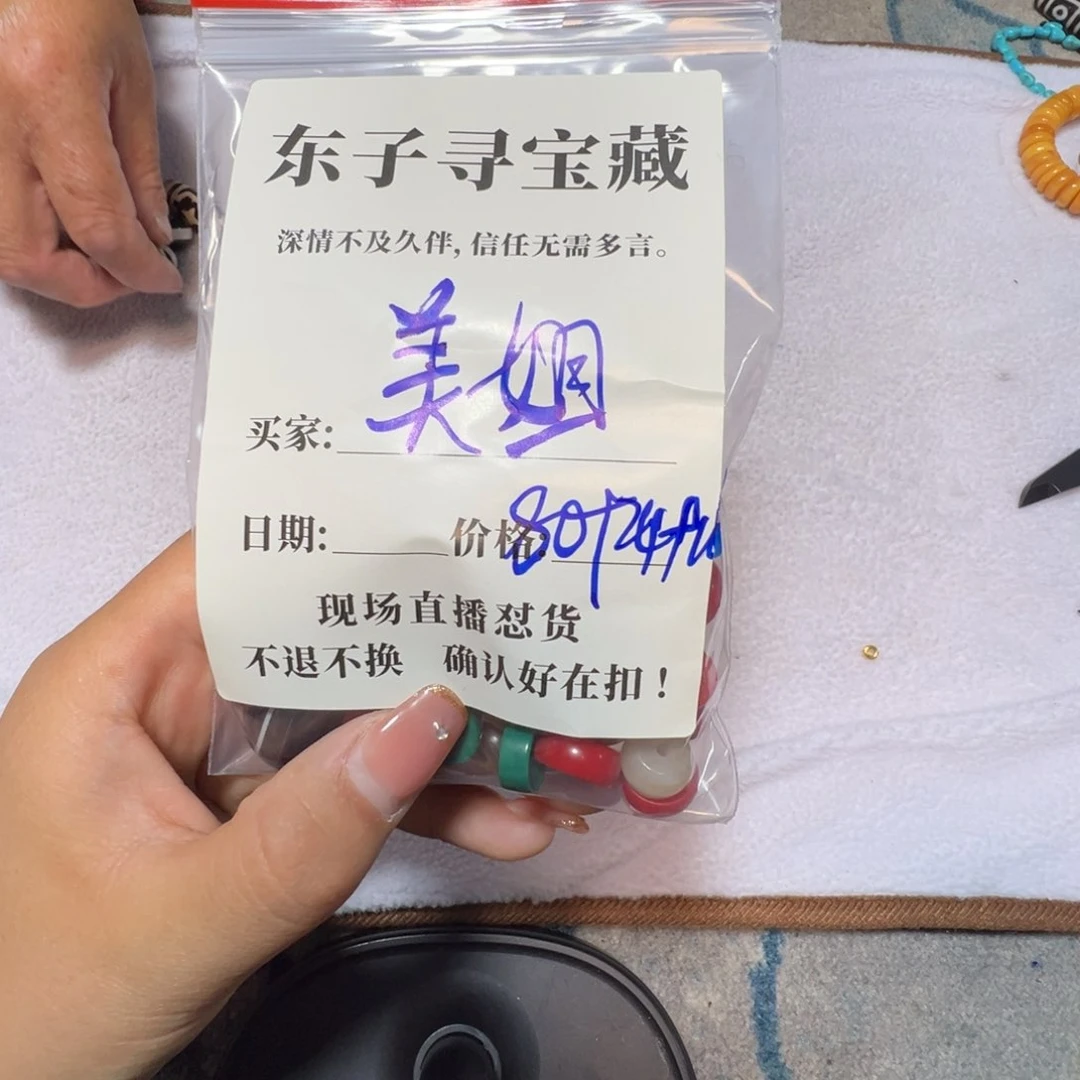 东子寻宝藏
深情不及久伴, 信任无需多言。
买家: 美姐
日期: 价格: 80
现场直播怼货
不退不换 确认好在扣！